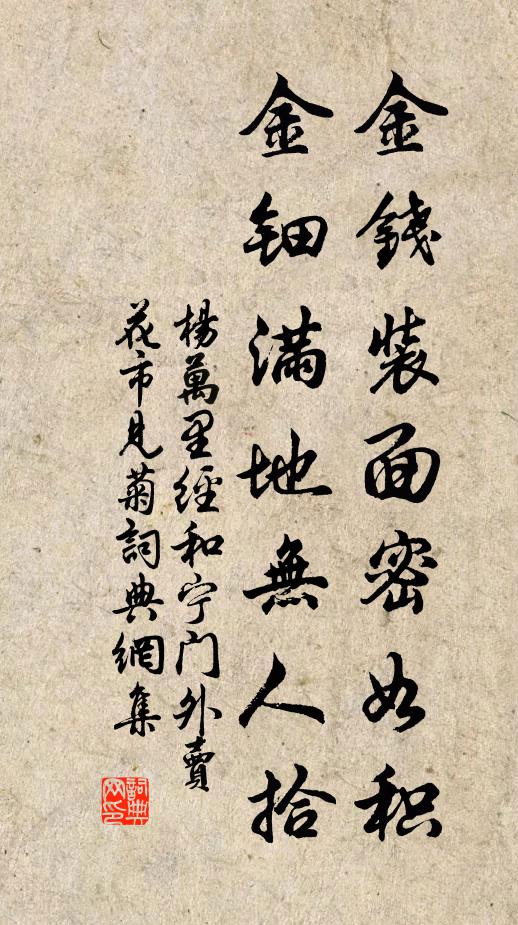 金錢裝面密如积
金钿滿地無人拾
楊萬里經和宁门外賣
花市見菊詞典網集
詞典网印